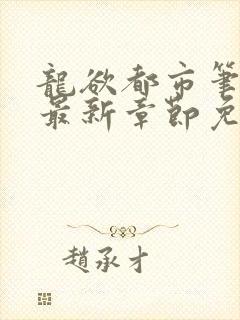 龍欲都市筆
最新章節免
趙承才